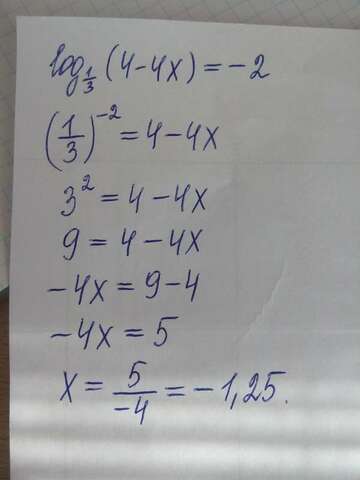 log₁/₃ (4-4x) = -2
(1/3)⁻² = 4-4x
3² = 4-4x
9 = 4-4x
-4x = 9-4
-4x = 5
x = 5/-4 = -1,25.